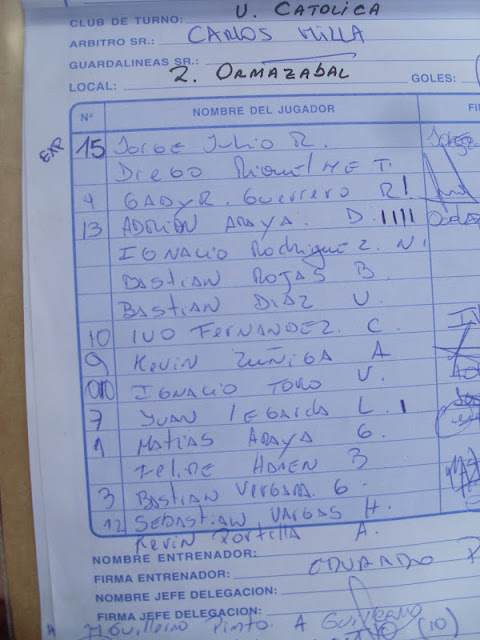 CLUB DE TURNO: U. CATOLICA
ARBITRO SR.: CARLOS MILLA
GUARDALINEAS SR.:
LOCAL: 2. ORMAZABAL GOLES:
Nº NOMBRE DEL JUGADOR
EXP 15 JORGE JULIO R.
DIEGO RIQUELME T.
4 GADY R. GUERRERO R
13 ADRIAN ARAYA. D.
IGNACIO RODRIGUEZ. N.
BASTIAN ROJAS B
BASTIAN DIAZ V.
10 IVO FERNANDEZ. C.
9 KEVIN ZUÑIGA A
IGNACIO TORO V.
7 JUAN L.
1 MATIAS ARAYA G.
FELIPE B
3 BASTIAN VERGARA. G
12 SEBASTIAN VARGAS H.
KEVIN PORTILLA A.
NOMBRE ENTRENADOR:
FIRMA ENTRENADOR: EDUARDO
NOMBRE JEFE DELEGACION:
FIRMA JEFE DELEGACION:
GUILLERMO PINTO. A (10)